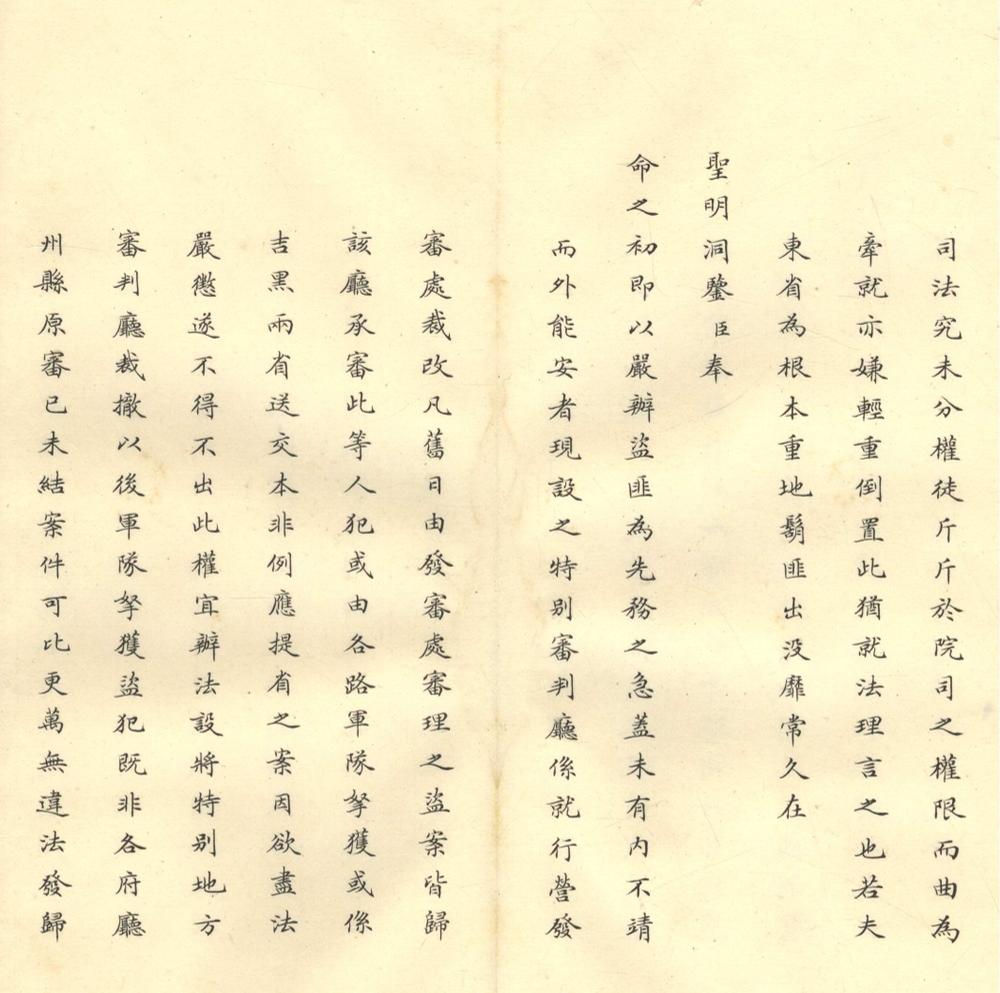 司法究未分權徒斤斤於院司之權限而曲為
牽就亦嫌輕重倒置此猶就法理言之也若夫
東省為根本重地鬍匪出没靡常久在
聖明洞鑒臣奉
命之初即以嚴辦盜匪為先務之急蓋未有内不靖
而外能安者現設之特别審判廳係就行營發
審處裁改凡舊日由發審處審理之盜案皆歸
該廳承審此等人犯或由各路軍隊拏獲或係
吉黑兩省送交本非例應提省之案因欲盡法
嚴懲遂不得不出此權宜辦法設將特别地方
審判廳裁撤以後軍隊拏獲盜犯既非各府廳
州縣原審已未結案件可比更萬無違法發歸